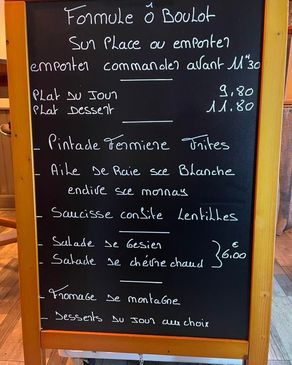 Formule Ô Boulot
Sur Place ou emporter
emporter commander avant 11H30
Plat du Jour 9,80
Plat Dessert 11.80
_ Pintade Fermiere Frites
_ Aile de Raie sce Blanche
endive sce mornay
_ Saucisse confite Lentilles
_ Salade de Gesier
_ Salade de chèvre chaud } 6€,00
_ Fromage de montagne
_ Desserts du Jour au choix